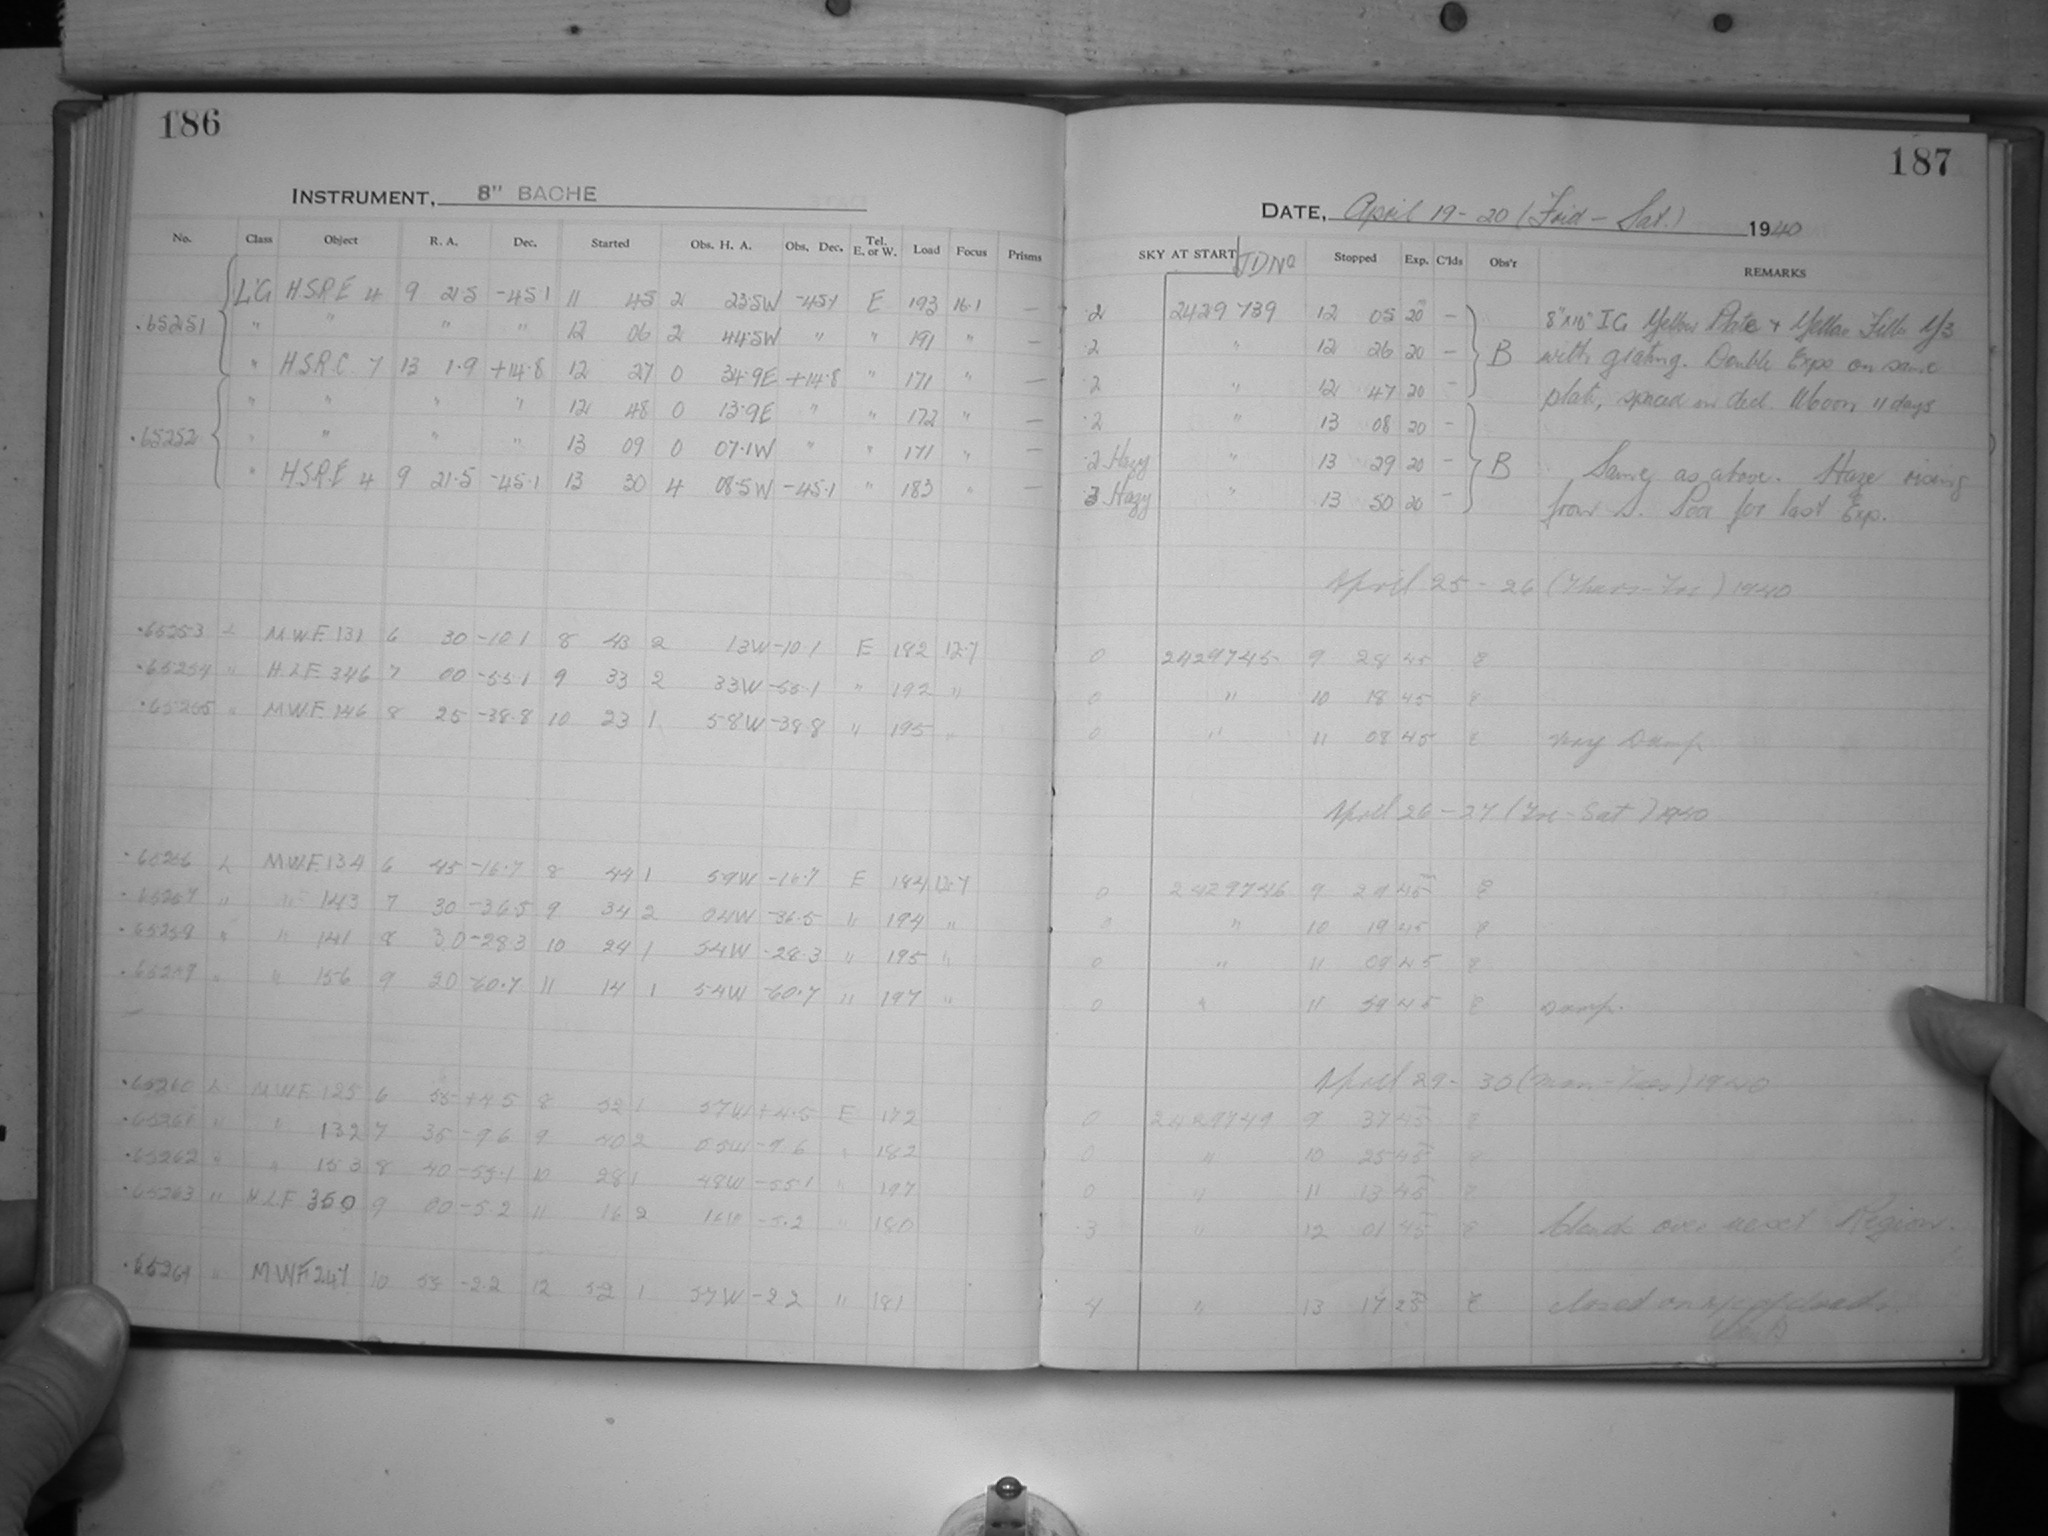 186
INSTRUMENT, 8" BACHE
No. Class Object R. A. Dec. Started Obs. H. A. Obs. Dec. Tel. E. or W. Load Focus Prisms
L'G H.S.R.E 4 9 21.5 -45.1 11 45 2 23.5W -45.1 E 193 16.1 —
.65251 " " " " 12 06 2 44.5W " " 191 " —
" H.S.R.C 7 13 1.9 +14.8 12 27 0 34.9E +14.8 " 171 " —
" " " " 12 48 0 13.9E " " 172 " —
.65252 " " " " 13 09 0 07.1W " " 171 " —
" H.S.R.E 4 9 21.5 -45.1 13 30 4 08.5W -45.1 " 183 " —
.65253 L MWF 131 6 30 -10.1 8 43 2 13W -10.1 E 182 12.7
.65254 " HLF 346 7 00 -55.1 9 33 2 33W -55.1 " 192 "
.65255 " MWF 146 8 25 -38.8 10 23 1 58W -38.8 " 195 "
.65256 L MWF 134 6 45 -16.7 8 44 1 59W -16.7 E 184 12.7
.65257 " " 143 7 30 -36.5 9 34 2 04W -36.5 " 194 "
.65258 " " 141 8 30 -28.3 10 24 1 54W -28.3 " 195 "
.65259 " " 156 9 20 -60.7 11 14 1 54W -60.7 " 197 "
.65260 L MWF 125 6 55 +4.5 8 52 1 57W +4.5 E 172
.65261 " " 132 7 35 -9.6 9 40 2 05W -9.6 " 182
.65262 " " 153 8 40 -55.1 10 28 1 48W -55.1 " 197
.65263 " HLF 350 9 00 -5.2 11 16 2 16W -5.2 " 180
.65264 " MWF 247 10 55 -2.2 12 52 1 57W -2.2 " 181
187
DATE, April 19-20 (Frid - Sat.) 1940
SKY AT START JDNo Stopped Exp. C'lds Obs'r REMARKS
.2 2429 739 12 05 20 — 8"x10" IG Yellow Plate + Yellow Filter
.2 " 12 26 20 — B with grating. Double Expo on same
.2 " 12 47 20 — plate, spaced in decl. Moon 11 days
.2 " 13 08 20 —
.2 Hazy " 13 29 20 — B Same as above. Haze rising
3 Hazy " 13 50 20 — from S. Poor for last Exp.
April 25-26 (Thurs-Fri) 1940
0 2429745 9 28 45
0 " 10 18 45
0 " 11 08 45 Very Damp
April 26-27 (Fri-Sat) 1940
0 2429746 9 29 45
0 " 10 19 45
0 " 11 09 45
0 " 11 59 45 Damp.
April 29-30 (Mon-Tues) 1940
0 2429749 9 37 45
0 " 10 25 45
0 " 11 13 45
.3 " 12 01 45 Clouds over next Region.
4 " 13 17 25 closed on a/c of clouds.